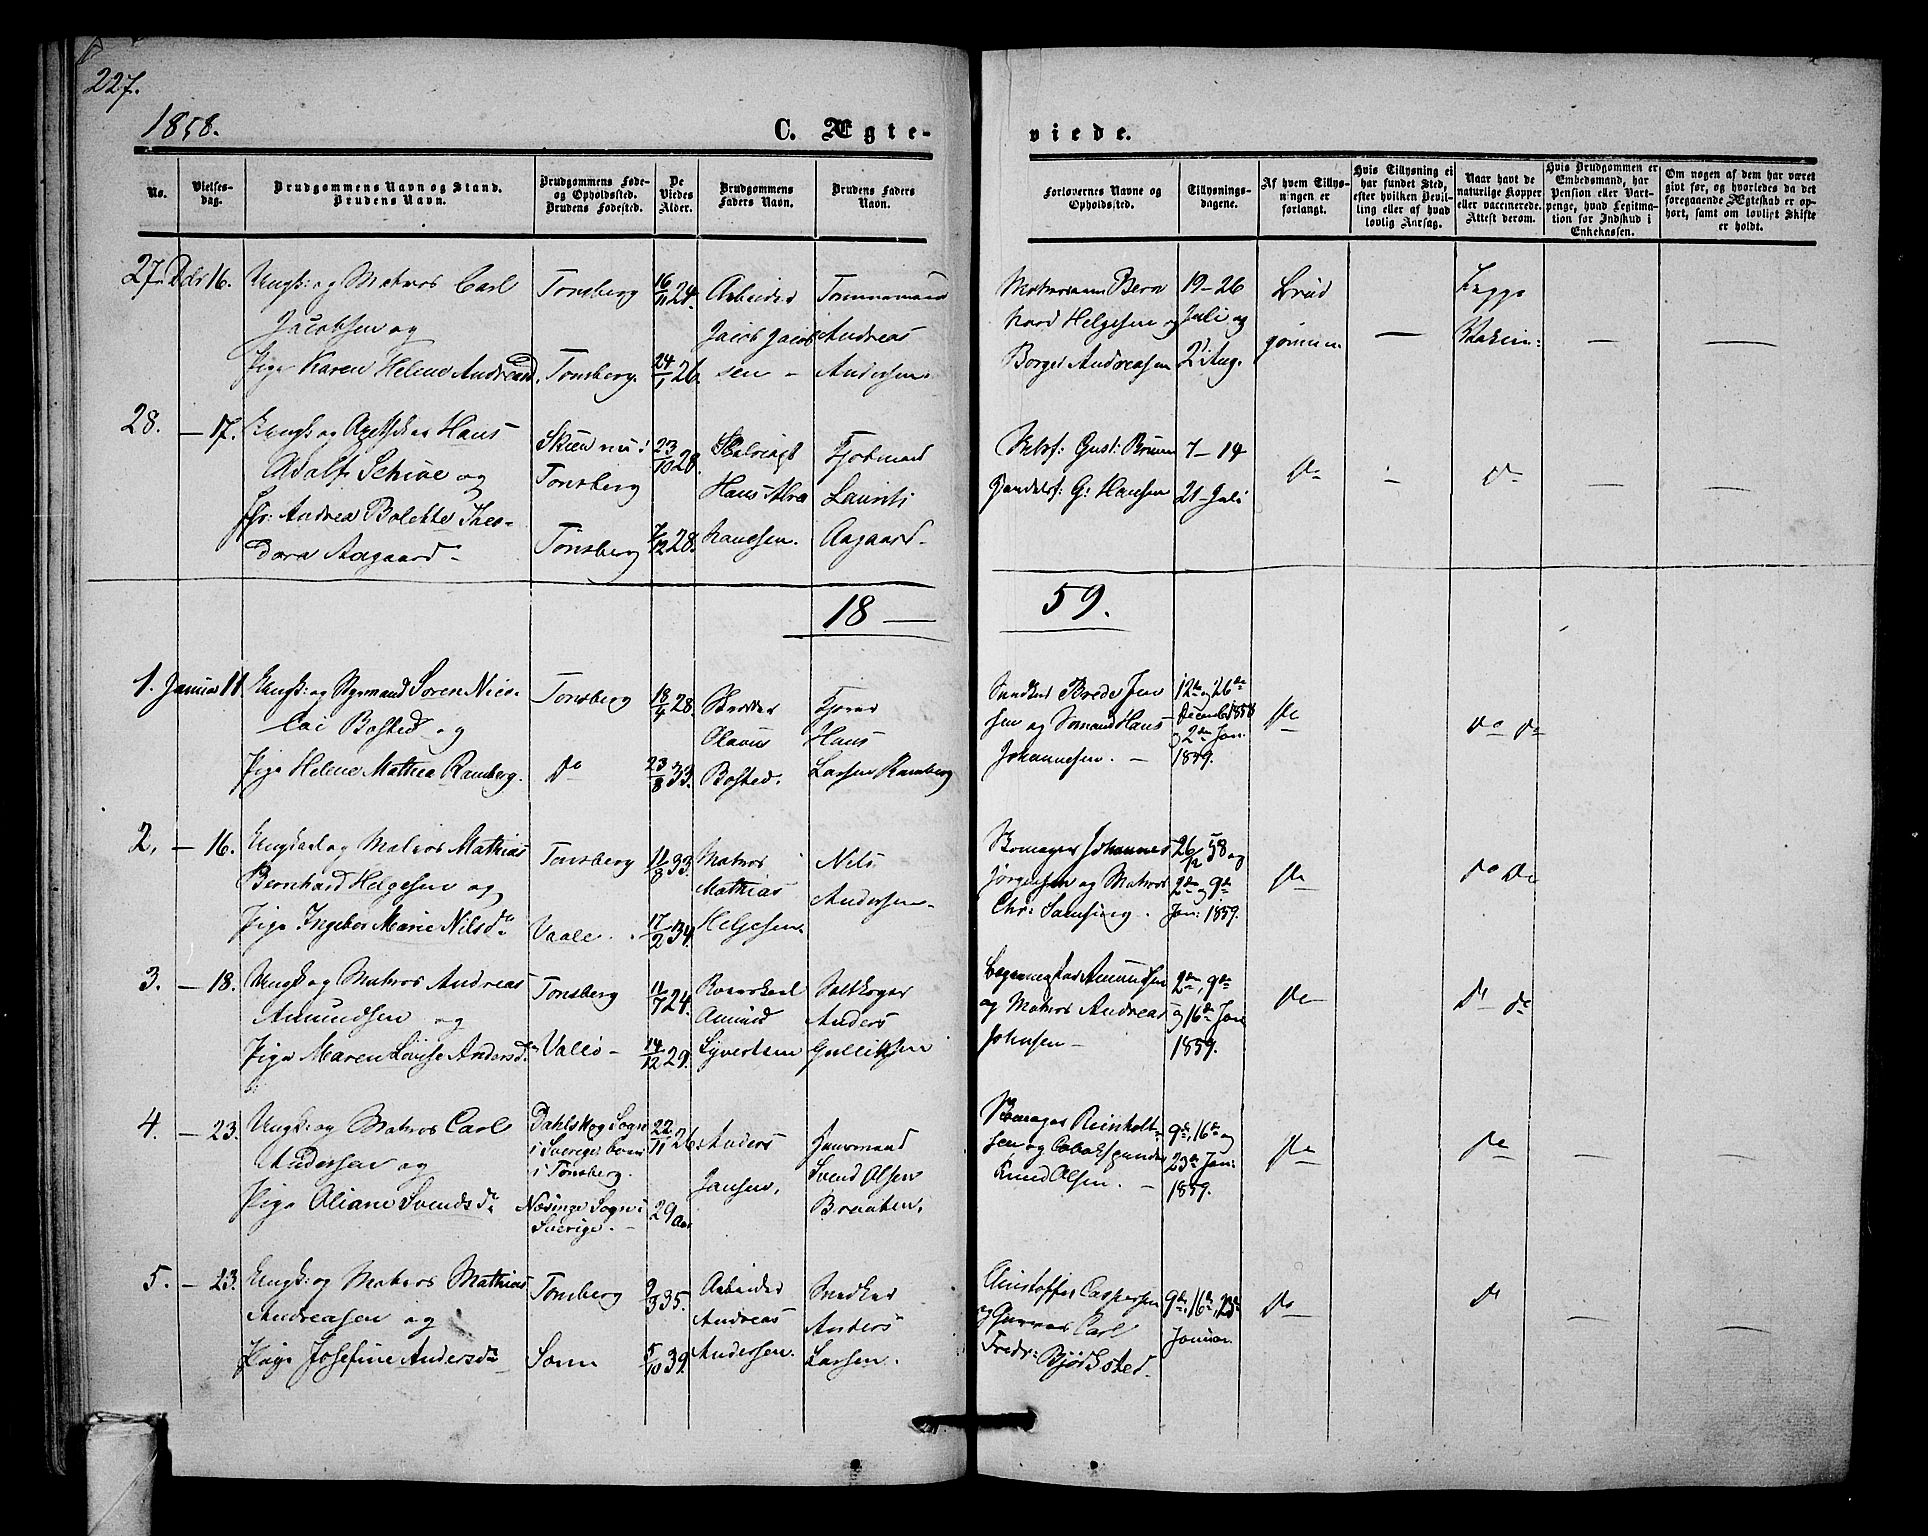 227.
1858.
C. Ægte-
viede.
No.
Vielses-
dag.
Brudgommens Navn og Stand.
Brudens Navn.
Brudgommens Føde-
og Opholdssted.
Brudens Fødested.
De
Viedes
Alder.
Brudgommens
Faders Navn.
Brudens Faders
Navn.
Forlovernes Navne og
Opholdssted.
Tillysnings-
dagene.
Af hvem Tillys-
ningen er
forlangt.
Hvis Tillysning ei
har fundet Sted,
efter hvilken Bevil-
ling eller af hvad
lovlig Aarsag.
Naar havt de
naturlige Kopper
eller vaccinerede.
Attest derom.
Hvis Brudgommen er
Embedsmand, har
Pension eller Vart-
penge, hvad Legitima-
tion for Indskud i
Enkekassen.
Om nogen af dem har været
givt før, og hvorledes da det
foregaaende Ægteskab er op-
hørt, samt om lovligt Skifte
er holdt.
27. Dbr 16.
Ungk: og Matros Carl
Jacobsen og
Pige Karen Helene Andreasd.
Tønsberg
Tønsberg.
16/11 24.
24/1 26.
Arbeider
Jacob Jacob
sen –
Tømmermand
Andreas
Andersen.
Matroserne Bern
hard Helgesen og
Borger Andreasen
19–26
Juli og
2 Aug.
Brud
gommen.
—
Begge
Vakcin:
—
—
28. — 17.
Ungk. og Apothker Hans
Adolf Schive og
Fr: Andrea Bolette Theo-
dora Aagaard.
Skien nu i
Tønsberg
Tønsberg
23/10 28.
7/12 28.
Hans Abra
hamsen.
Laurits
Aagaard.
Gust: Bruun
Handelsf: G: Hansen
7–14
21 Juli
Do
-
do
—
—
18 —
59.
1. Januar 11
Ungk: og Styrmand Søren Nico-
lai Bosted og
Pige Helene Mathea Ramberg.
Tønsberg
Do
18/4 28.
23/8 33.
Skredder
Olavus
Bosted.
Hans
Larsen Ramberg
Snedker Brede Jen
sen og Sømand Hans
Johannesen. —
12te og 26de
December 1858
og 2den Jan.
1859.
Do
do do
2. — 16.
Ungkarl og Matros Mathias
Bernhard Helgesen og
Pige Ingebor Marie Nilsdr
Tønsberg
Vaale.
11/8 33.
17/2 34.
Matros
Mathias
Helgesen.
Nils
Andersen.
Skomager Johannes
Jørgensen og Matros
Chr: Samsing.
26/12 58 og
2den og 9de
Jan: 1859.
Do
do do
3. — 18.
Ungk og Matros Andreas
Amundsen og
Pige Maren Lovise Andersdr
Tønsberg
Vallø –
11/7 24.
14/12 29.
Amund
Syvertsen
Saltkoger
Anders
Gullichsen
Amundsen
og Matros Andreas
Johnsen –
2den, 9de
og 16de Jan
1859.
Do
do do
4. — 23.
Ungk: og Matros Carl
Andersen og
Pige Oliane Svendsdr
Dahlskog Sogn
i Sverige: boen
i Tønsberg.
Sogn i
Sverige. –
22/11 26
29 Aar
Anders
Jansen.
Huusmand
Svend Olsen
Braaten.
Skomager Reinholt-
sen og Tobakspinder
Knud Olsen. —
9de, 16de og
23de Jan:
1859.
Do
do
—
—
5. — 23.
Ungk: og Matros Mathias
Andreasen og
Pige Josefine Andersdr
Tønsberg
Sem
9/3 35.
5/10 39.
Arbeider
Andreas
Andersen.
Snedker
Anders
Larsen.
Christoffer Caspersen
og Carl
Fredr: Bjørksted.
9de, 16de, 23de
Januar.
Do
do
—
—